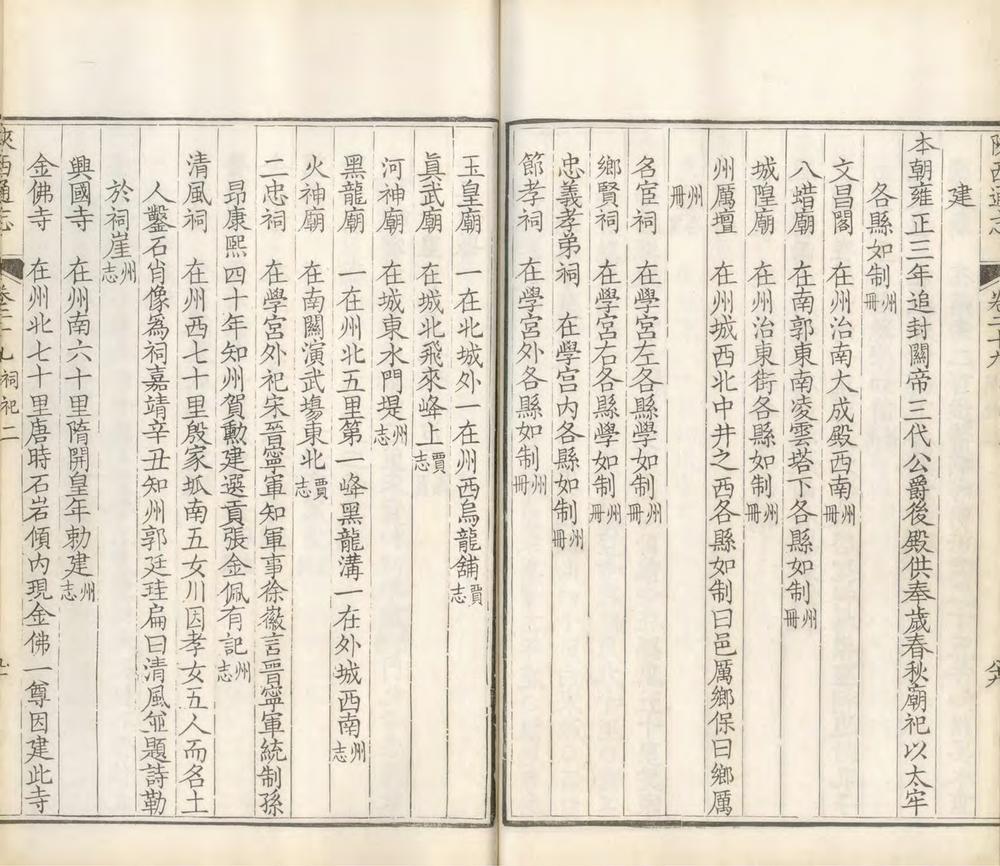 陝西通志
卷二十九
建
本朝雍正三年追封關帝三代公爵後殿供奉歲春秋廟祀以太牢
各縣如制州冊
文昌閣 在州治南大成殿西南州冊
八蜡廟 在南郭東南凌雲塔下各縣如制州冊
城隍廟 在州治東街各縣如制州冊
州厲壇 在州城西北中井之西各縣如制曰邑厲鄉保曰鄉厲
州冊
名宦祠 在學宮左各縣學如制州冊
鄉賢祠 在學宮右各縣學如制州冊
忠義孝弟祠 在學宮內各縣如制州冊
節孝祠 在學宮外各縣如制州冊
玉皇廟 一在北城外一在州西烏龍舖賈志
真武廟 在城北飛來峰上賈志
河神廟 在城東水門堤州志
黑龍廟 一在州北五里第一峰黑龍溝一在外城西南州志
火神廟 在南關演武場東北賈志
二忠祠 在學宮外祀宋晉寧軍知軍事徐徽言晉寧軍統制孫
昂康熙四十年知州賀勳建選貢張金佩有記州志
清風祠 在州西七十里殷家坬南五女川因孝女五人而名土
人鑿石肖像為祠嘉靖辛丑知州郭廷珪扁曰清風並題詩勒
於祠崖州志
興國寺 在州南六十里隋開皇年勅建州志
金佛寺 在州北七十里唐時石岩傾內現金佛一尊因建此寺
陝西通志
卷二十九 祠祀二